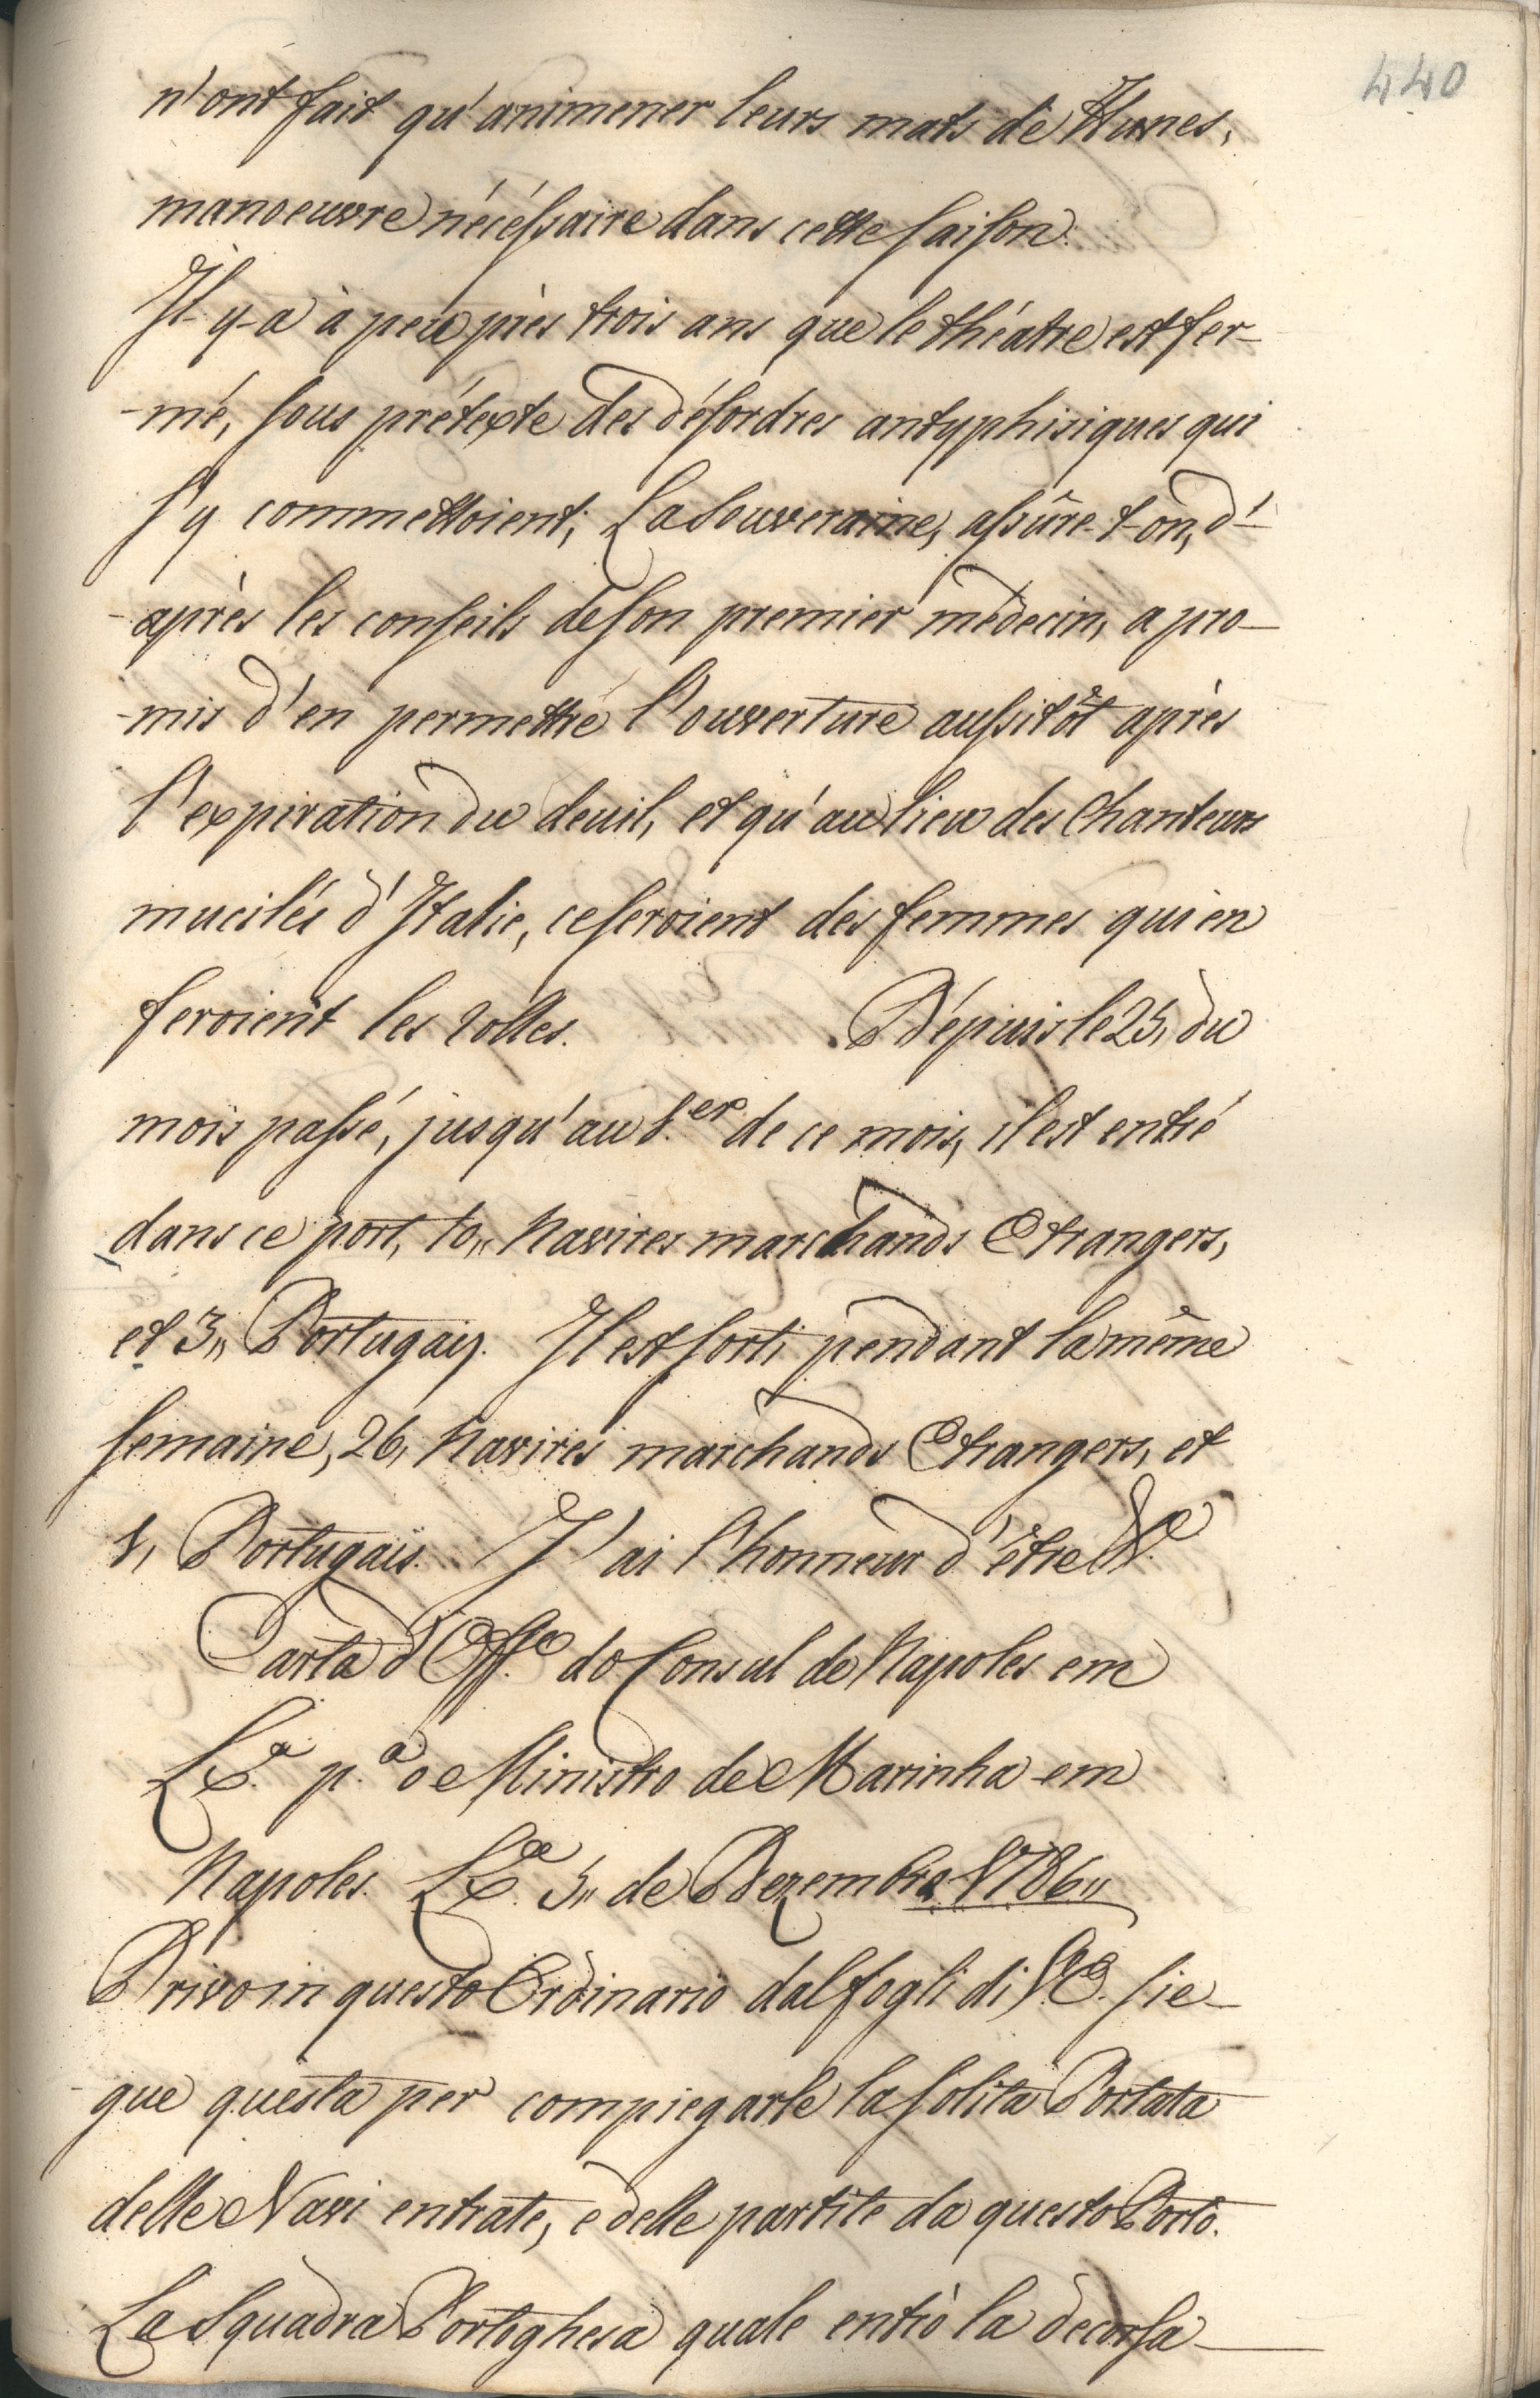 440
n'ont fait qu'animener leurs mats de Hunes,
manoeuvre nécéssaire dans cette saison.
Il-y-a à peu près trois ans que le théatre est fer-
-mé, sous prétexte des désordres antyphisiques qui
s'y commettoient; La Souveraine, assûre-t-on, d'-
-après les conseils de son premier médecin, a pro-
-mis d'en permettre l'ouverture aussitôt après
l'expiration du deuil, et qu'au lieu des Chanteurs
mucilés d'Italie, ce seroient des femmes qui en
feroient les rolles. Dépuis le 25, du
mois passé, jusqu'au 1.er de ce mois, il est entré
dans ce port, 10,, Navires marchands Etrangers,
et 3,, Portugaiz. Il est sorti pendant la même
semaine, 26, Navires marchands Etrangers, et
1, Portugais. J'ai l'honneur d'être &.ª
Carta d'Off.º do Consul de Napoles em
Lx.ª p.ª o Ministro de Marinha em
Napoles. Lx.ª 5,, de Dezembro 1786,,
Privo in questo Ordinario dal fogli di V.E. sie-
-gue questa per compiegarle la solita Portata
delle Navi entrate, e delle partite da questo Porto.
La Squadra Portoghesa quale entrò la decorsa